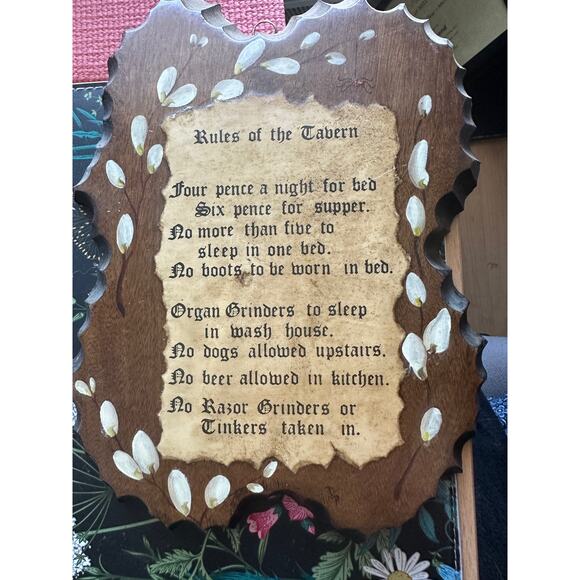 Rules of the Tavern
Four pence a night for bed
Six pence for supper.
No more than five to
sleep in one bed.
No boots to be worn in bed.
Organ Grinders to sleep
in wash house.
No dogs allowed upstairs.
No beer allowed in kitchen.
No Razor Grinders or
Tinkers taken in.